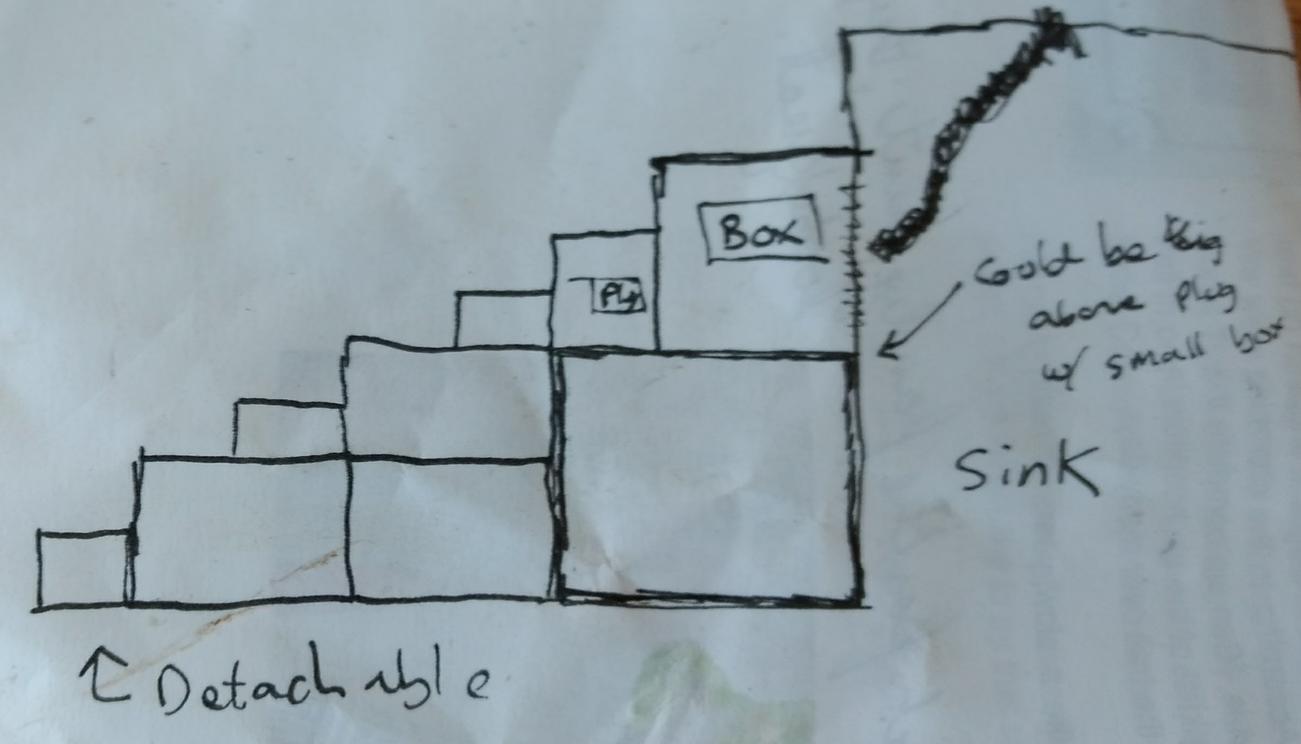 Box
Ply
Could be big
above plug
w/ small box
Sink
Detachable